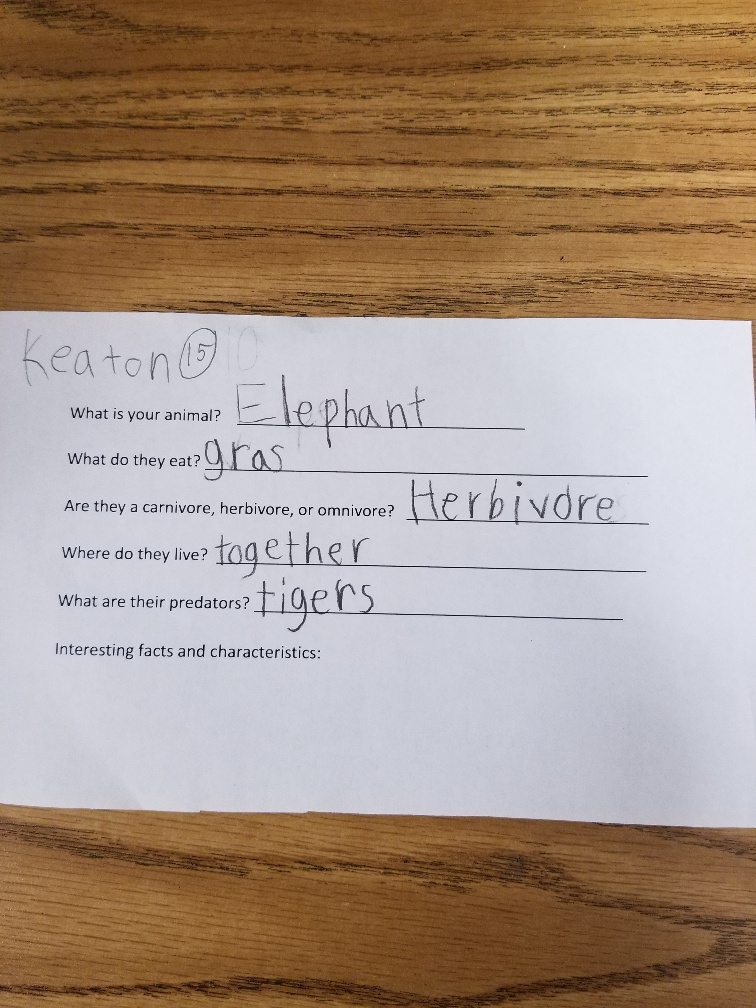 Keaton 15
What is your animal? Elephant
What do they eat? gras
Are they a carnivore, herbivore, or omnivore? Herbivore
Where do they live? together
What are their predators? tigers
Interesting facts and characteristics: